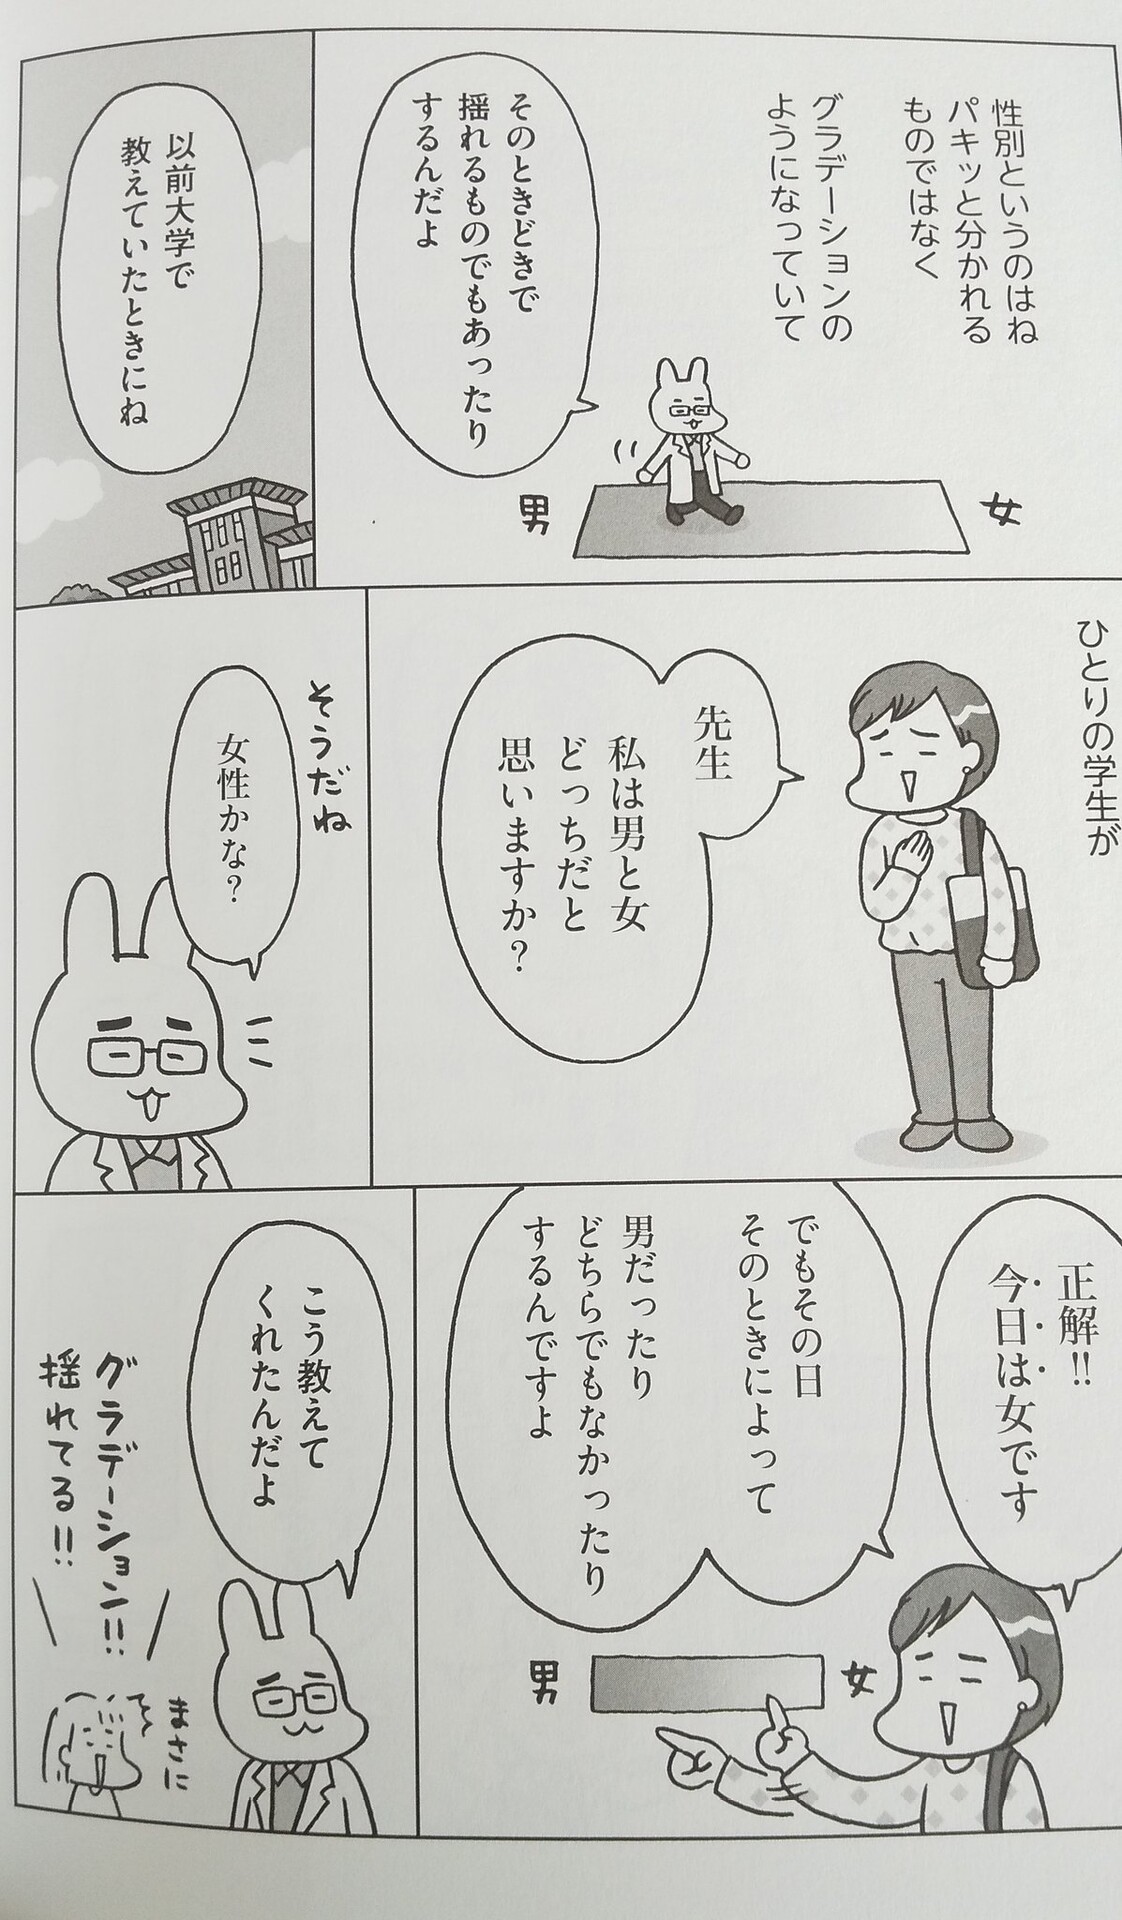 性別というのはね
パキッと分かれる
ものではなく
グラデーションの
ようになっていて
そのときどきで
揺れるものでもあったり
するんだよ
女
男
以前大学で
教えていたときにね
ひとりの学生が
先生
私は男と女
どっちだと
思いますか?
そうだね
女性かな?
正解!!
今日は女です
でもその日
そのときによって
男だったり
どちらでもなかったり
するんですよ
女
男
こう教えて
くれたんだよ
グラデーション!!
揺れてる!!
まさに